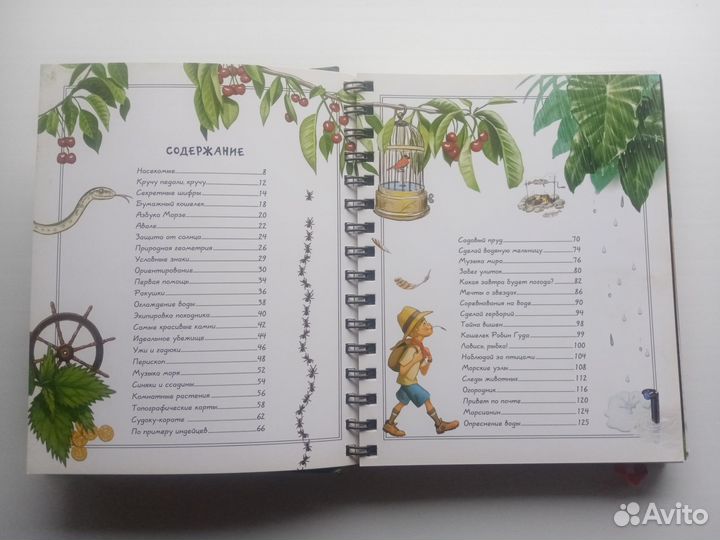 СОДЕРЖАНИЕ
Насекомые 8
Кручу педали, кручу 12
Секретные шифры 14
Бумажный кошелек 18
Азбука Морзе 20
Авале 22
Защита от солнца 24
Природная геометрия 26
Условные знаки 29
Ориентирование 30
Первая помощь 34
Ракушки 36
Охлаждение воды 38
Экипировка походника 40
Самые красивые камни 42
Идеальное убежище 44
Ужи и гадюки 46
Перископ 48
Музыка моря 52
Синяки и ссадины 54
Комнатные растения 56
Топографические карты 58
Судоку-карате 62
По примеру индейцев 66
Садовый пруд 70
Сделай водяную мельницу 74
Музыка мира 76
Забег улиток 80
Какая завтра будет погода? 82
Мечты о звездах 86
Соревнования на воде 90
Сделай гербарий 94
Тайна вишен 98
Кошелек Робин Гуда 99
Ловись, рыбка! 100
Наблюдай за птицами 104
Морские узлы 108
Следы животных 112
Огородник 116
Привет по почте 120
Марсианин 124
Опреснение воды 125
Avito